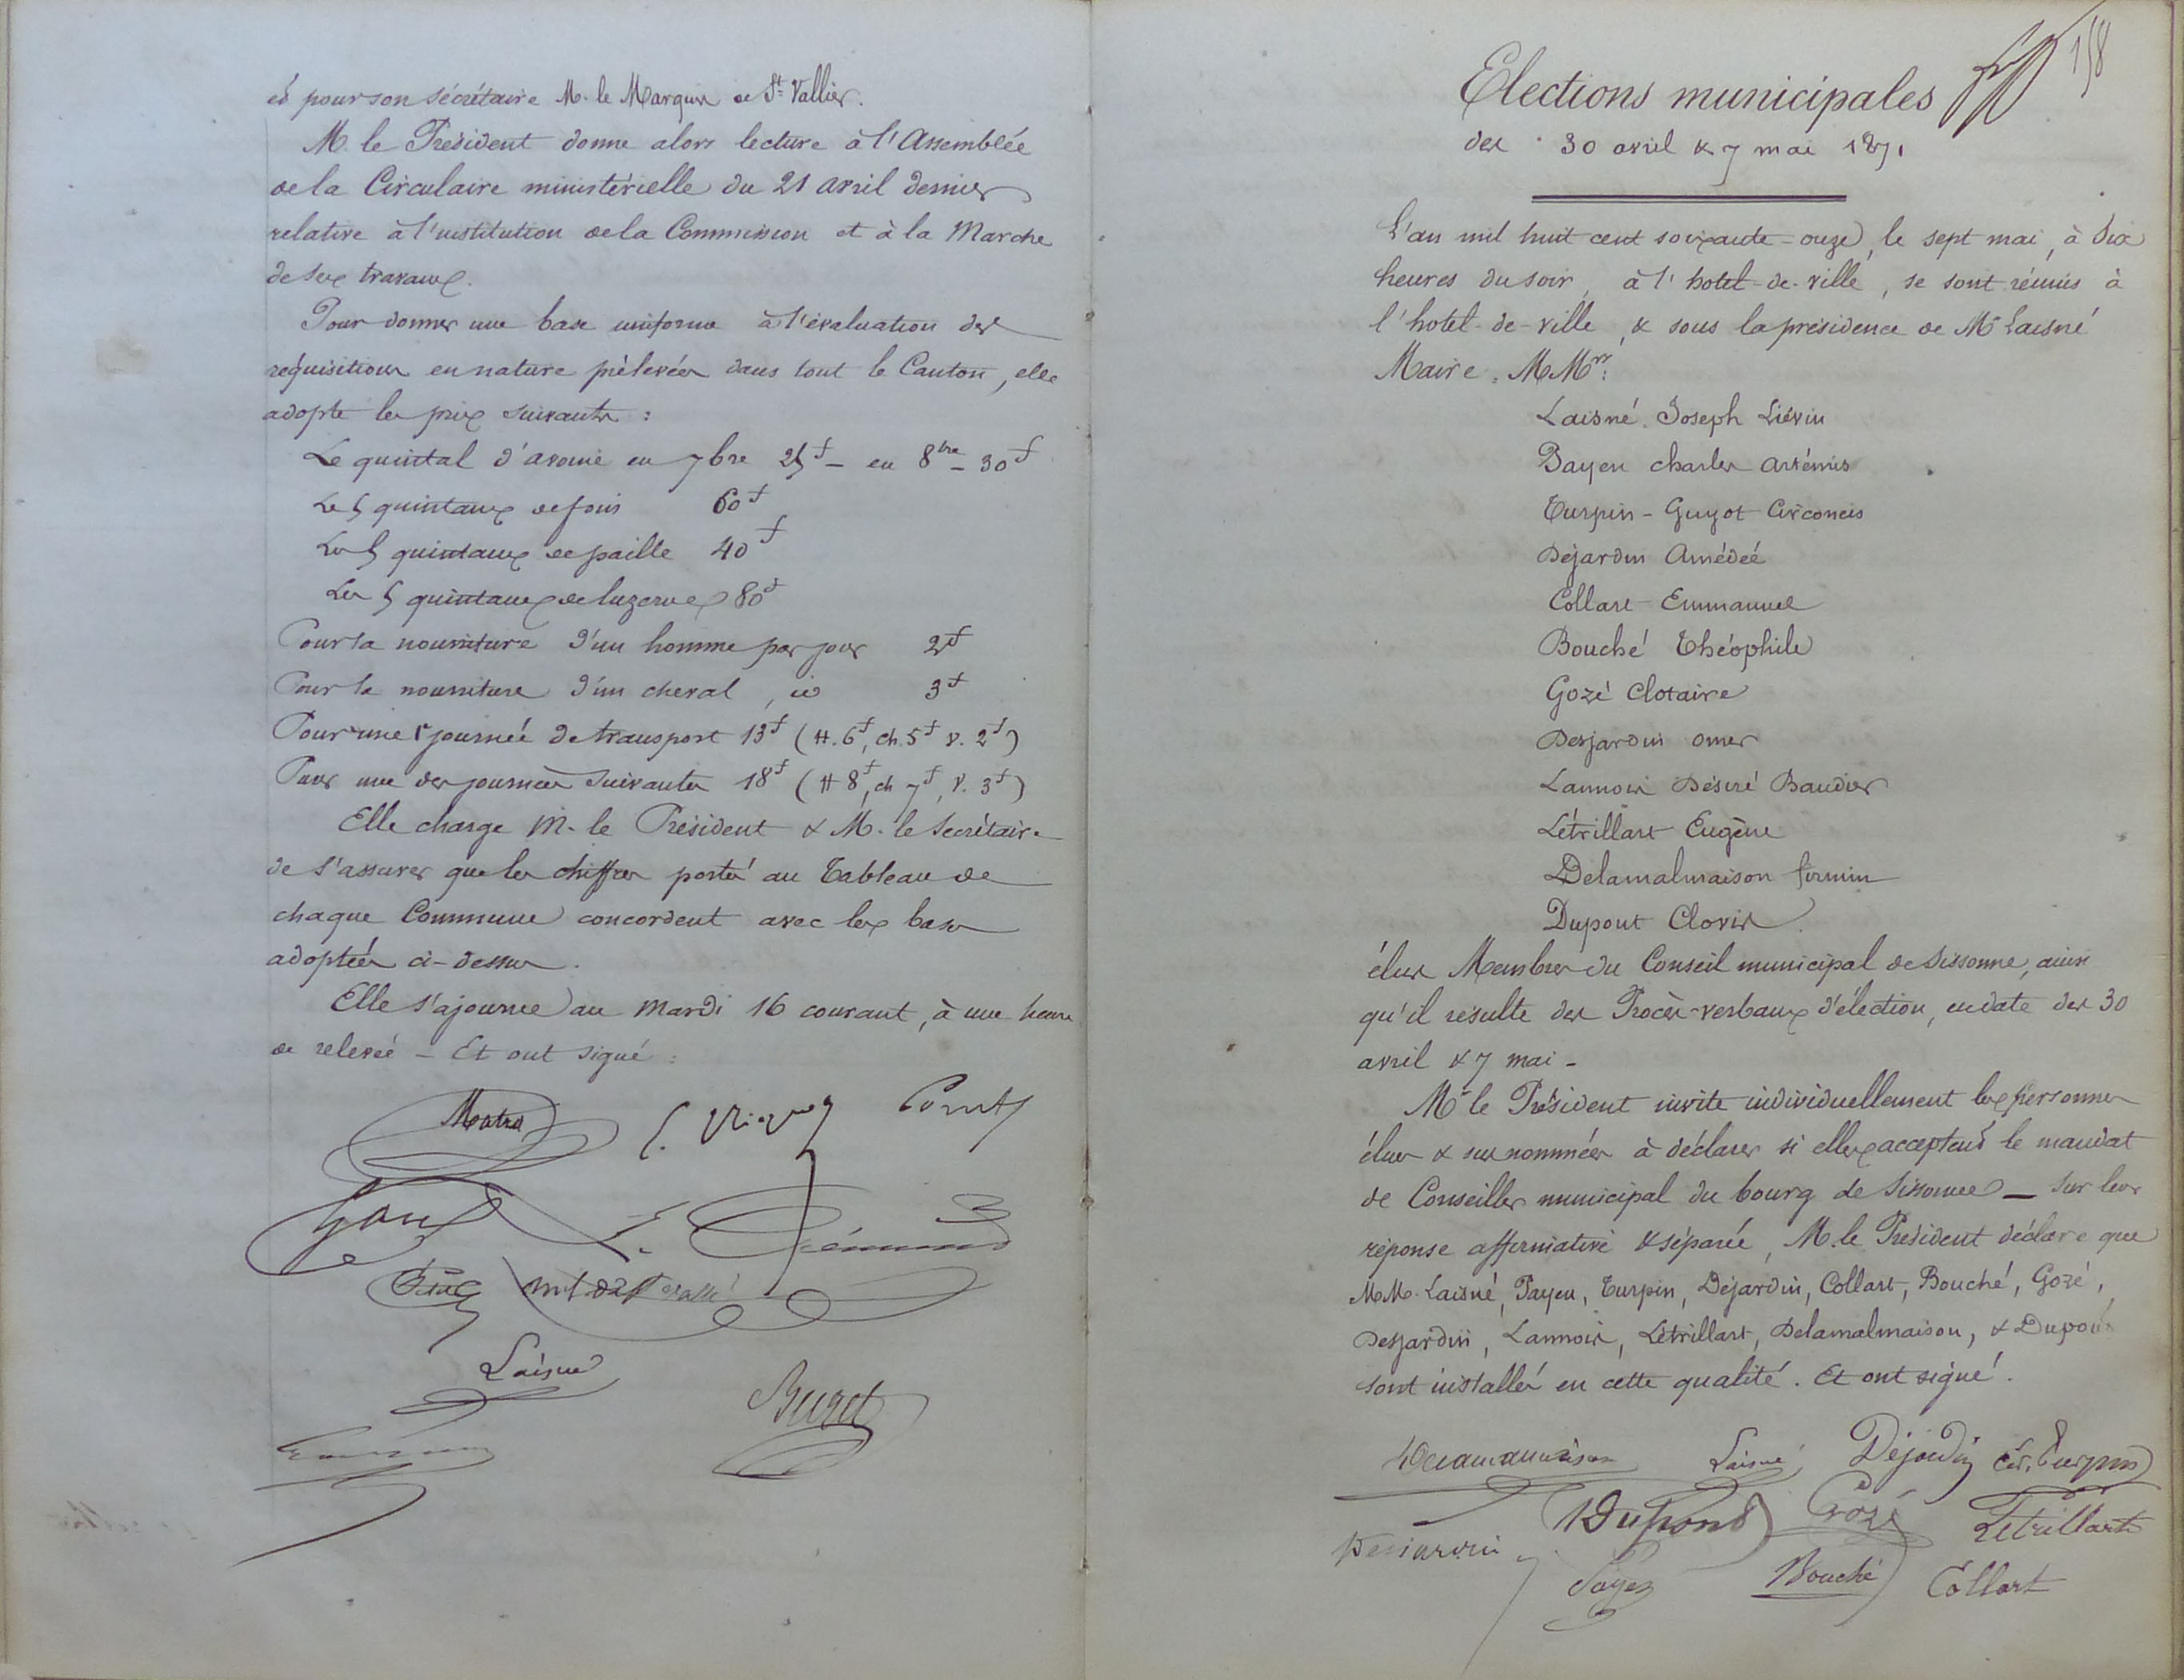 et pour son sécrétaire M. le Marquis de St. Vallier.
M. le Président donne alors lecture à l'Assemblée
de la Circulaire ministérielle du 21 avril dernier
relative à l'institution de la Commission et à la Marche
de ses travaux.
Pour donner une base uniforme à l'évaluation des
réquisitions en nature prélevées dans tout le Canton, elle
adopte les prix suivants :
Le quintal d'avoine en 7bre 25f - en 8bre - 30f
Les 5 quintaux de foin 60f
Les 5 quintaux de paille 40f
Les 5 quintaux de luzerne 80f
Pour la nourriture d'un homme par jour 2f
Pour la nourriture d'un cheval, id 3f
Pour une 1e journée de transport 13f (H. 6f, ch. 5f v. 2f)
Pour une des journées suivantes 18f (H 8f, ch 7f, V. 3f)
Elle charge M. le Président & M. le Secrétaire
de s'assurer que les chiffres portés au Tableau de
chaque Commune concordent avec les bases
adoptées ci-dessus.
Elle s'ajourne au Mardi 16 courant, à une heure
de relevée - Et ont signé :
Laisné
Buret
158
Elections municipales
des 30 avril & 7 mai 1871
L'an mil huit cent soixante-onze, le sept mai, à dix
heures du soir, à l'hotel-de-ville, se sont réunis à
l'hotel-de-ville, & sous la présidence de Mr Laisné
Maire, MMrs :
Laisné Joseph Liévin
Payen charles Artémis
Turpin-Guyot Circoncis
Déjardin Amédée
Collart Emmanuel
Bouché Théophile
Gozé Clotaire
Desjardin Omer
Lannois Désiré Baudier
Létrillart Eugène
Delamalmaison firmin
Dupont Clovis.
élus Membres du Conseil municipal de Sissonne, ainsi
qu'il résulte des Procès-verbaux d'élection, en date des 30
avril & 7 mai -
Mr le Président invite individuellement les personnes
élues & sus nommées à déclarer si elles acceptent le mandat
de Conseiller municipal du bourg de Sissonne - Sur leur
réponse affirmative & séparée, M. le Président déclare que
MM. Laisné, Payen, Turpin, Déjardin, Collart, Bouché, Gozé,
Desjardin, Lannois, Létrillart, Delamalmaison, & Dupont
sont installés en cette qualité. Et ont signé.
Delamalmaison Laisné Déjardin Cir. Turpin
Dupont Gozé Létrillart
Desjardin Payen Bouché Collart